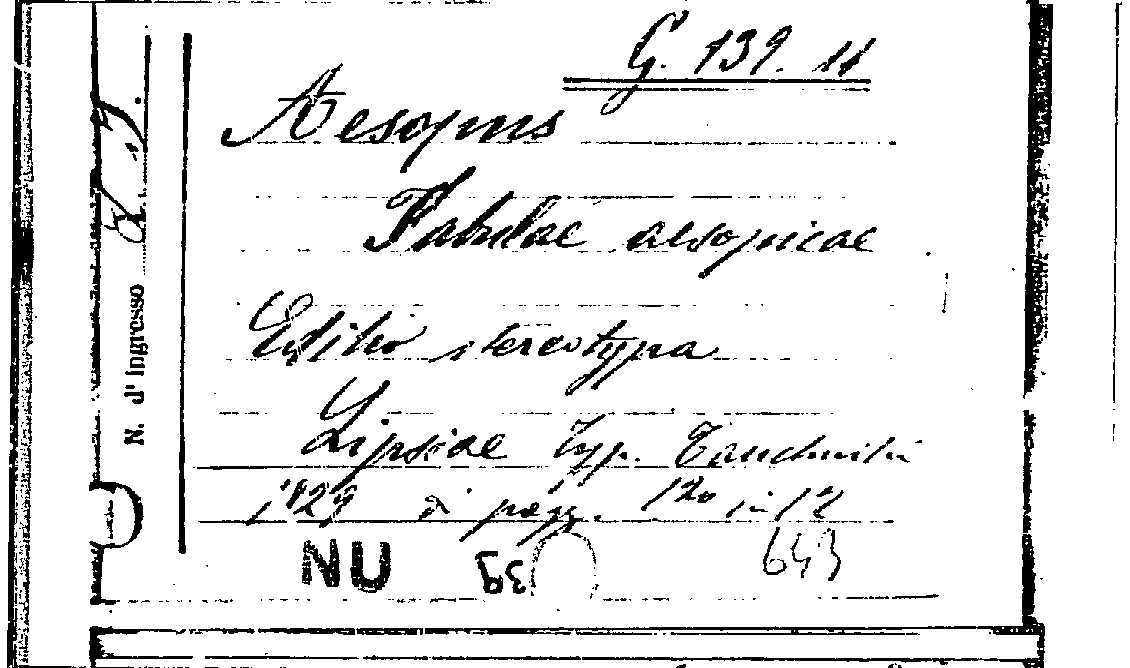 G. 139. 11
Aesopus
Fabulae aesopicae
Editio stereotypa
Lipsiae typ. Tauchnitii
1829 di pagg. 120 in 12
NU
643
N. d' ingresso